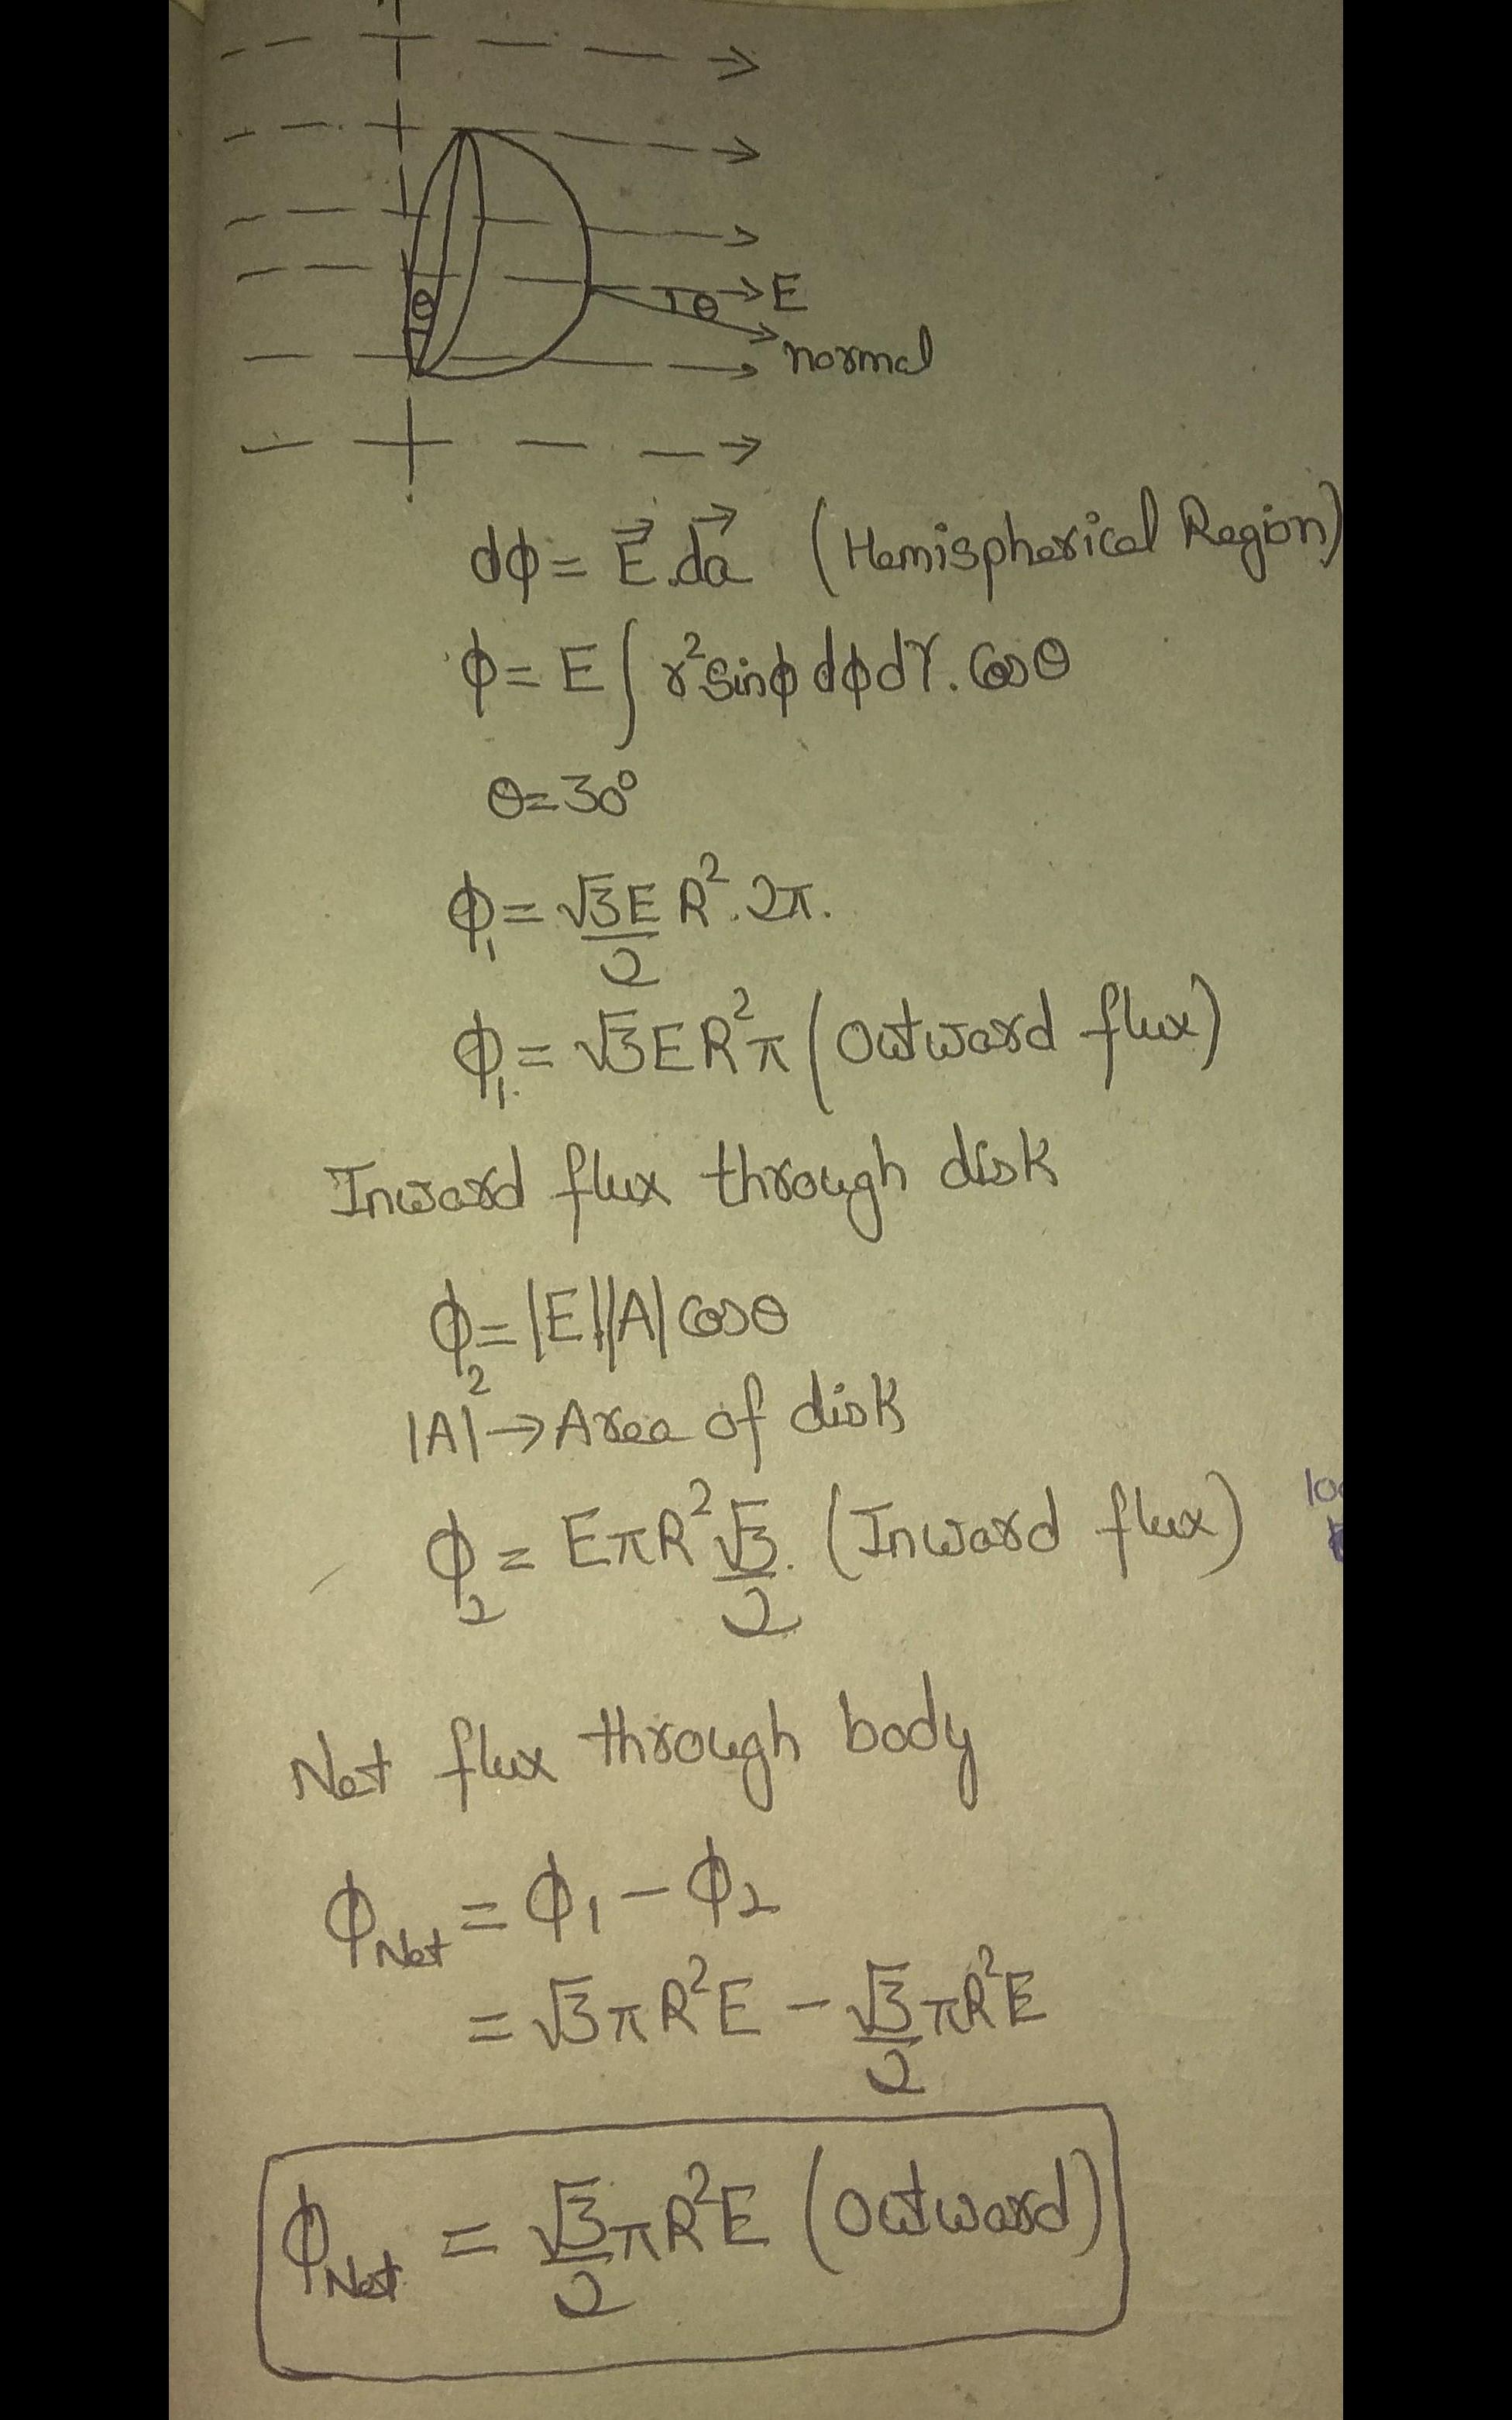 θ
θ
E
normal
dϕ = E⃗.da⃗ (Hemispherical Region)
ϕ = E ∫ r² sinϕ dϕ dγ. Cosθ
θ = 30°
ϕ₁ = √3E/2 R². 2π.
ϕ₁ = √3 E R² π (Outward flux)
Inward flux through disk
ϕ₂ = |E||A| Cosθ
|A| → Area of disk
ϕ₂ = EπR² √3/2. (Inward flux)
Net flux through body
ϕNet = ϕ₁ - ϕ₂
= √3 π R² E - √3/2 π R² E
ϕNet = √3/2 π R² E (Outward)